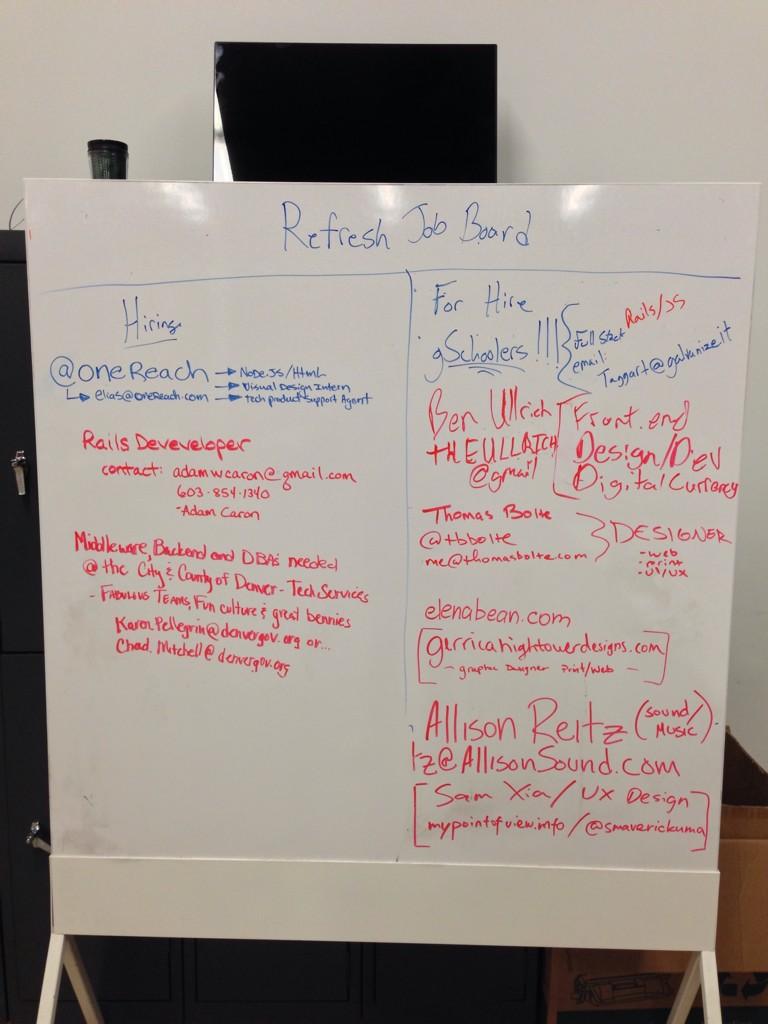 Refresh Job Board
Hiring
@oneReach → Node.JS/Html
→ Visual Design Intern
elias@onereach.com → tech product support Agent
Rails Deveveloper
contact: adamwcaron@gmail.com
603-854-1340
-Adam Caron
Middleware, Backend and DBAs needed
@ the City & County of Denver - Tech Services
- Fabulous Teams, Fun culture & great bennies
Karen.Pellegrin@denvergov.org or...
Chad.Mitchell@denvergov.org
For Hire
gSchoolers!!!
Full Stack Rails/JS
email:
Taggart@galvanize.it
Ben Ullrich
tHEULLRICH
@gmail
Front.end
Design/Dev
Digital Currency
Thomas Bolte
@tbbolte
me@thomasbolte.com
DESIGNER
- web
- print
- UI/UX
elenabean.com
gerricahightowerdesigns.com
- graphic Designer Print/Web -
Allison Reitz (Sound/
Music)
tz@AllisonSound.com
Sam Xia / UX Design
mypointofview.info / @smaverickuma